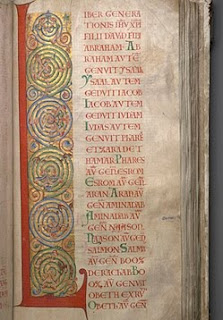 LIBER GENERA
TIONIS IHV XPI
FILII DAVID FILII
ABRAHAM· AB
RAHAM AUTEM
GENVIT YSAAC
YSAAC AVTEM
GENVIT IACOB
IACOB AVTEM
GENVIT IVDAM
IVDAS AVTEM
GENVIT PHARES
ET ZARA DE T
HAMAR PHARES
AV GEN ESROM
ESROM AV GEN
ARAN ARAN AV
GEN AMINADAB
AMINADAB AV
GEN NAASON
NAASON AV GEN
SALMON SALMON
AV GEN BOOZ
DE RACHAB BO
OZ AV GENVIT
OBETH EX RV
OBETH AV GEN